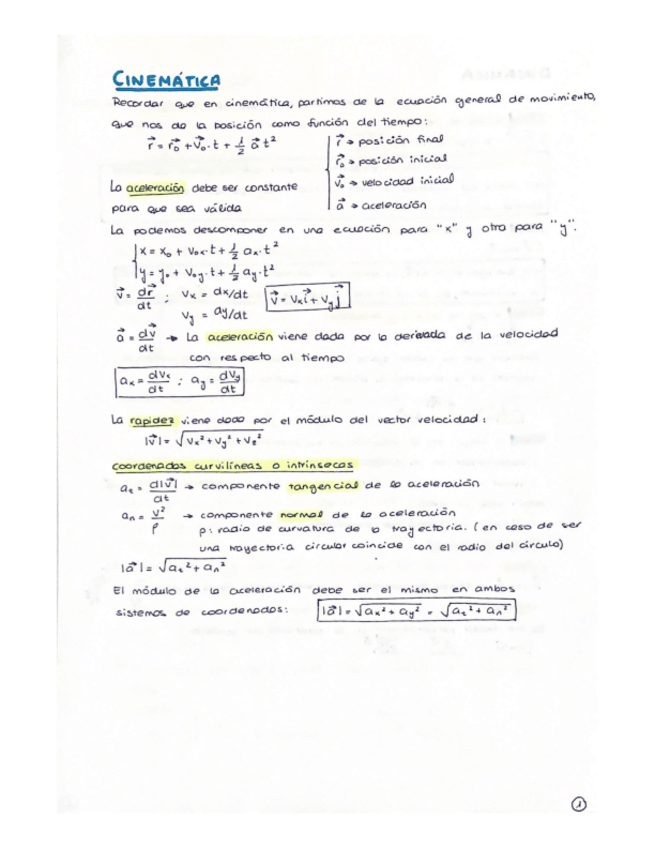 CINEMÁTICA
Recordar que en cinemática, partimos de la ecuación general de movimiento,
que nos da la posición como función del tiempo:
r⃗ = r⃗₀ + v⃗₀·t + 1/2 a⃗ t²
r⃗ → posición final
r⃗₀ → posición inicial
v⃗₀ → velocidad inicial
a⃗ → aceleración
La aceleración debe ser constante
para que sea válida
La podemos descomponer en una ecuación para "x" y otra para "y".
x = x₀ + v₀ₓ·t + 1/2 aₓ·t²
y = y₀ + v₀y·t + 1/2 ay·t²
v⃗ = dr⃗/dt ; vₓ = dx/dt v⃗ = vₓ i⃗ + vy j⃗
vy = dy/dt
a⃗ = dv⃗/dt → La aceleración viene dada por la derivada de la velocidad
con respecto al tiempo
aₓ = dvₓ/dt ; ay = dvy/dt
La rapidez viene dada por el módulo del vector velocidad:
|v⃗| = √(vₓ² + vy² + vz²)
coordenadas curvilíneas o intrínsecas
at = d|v⃗|/dt → componente tangencial de la aceleración
an = v²/ρ → componente normal de la aceleración
ρ: radio de curvatura de la trayectoria. (en caso de ser
una trayectoria circular coincide con el radio del círculo)
|a⃗| = √(at² + an²)
El módulo de la aceleración debe ser el mismo en ambos
sistemas de coordenadas: |a⃗| = √(aₓ² + ay²) = √(at² + an²)
1